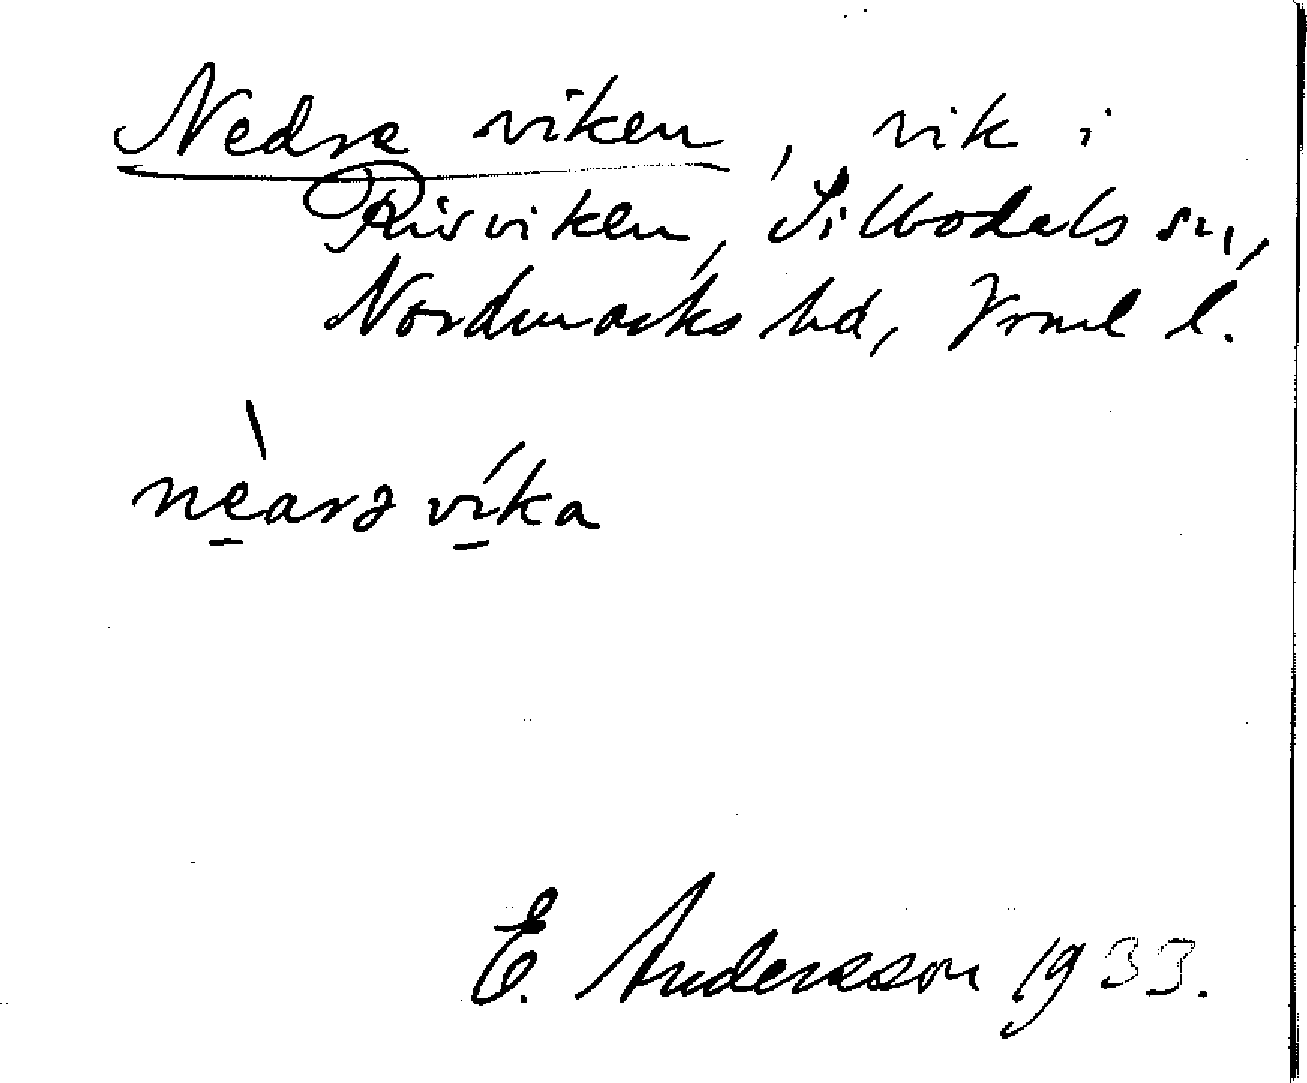 Nedre viken, vik i
Risviken, Silbodals sn,
Nordmarks hd, Vrml l.
nèarə víka
E. Andersson 1933.